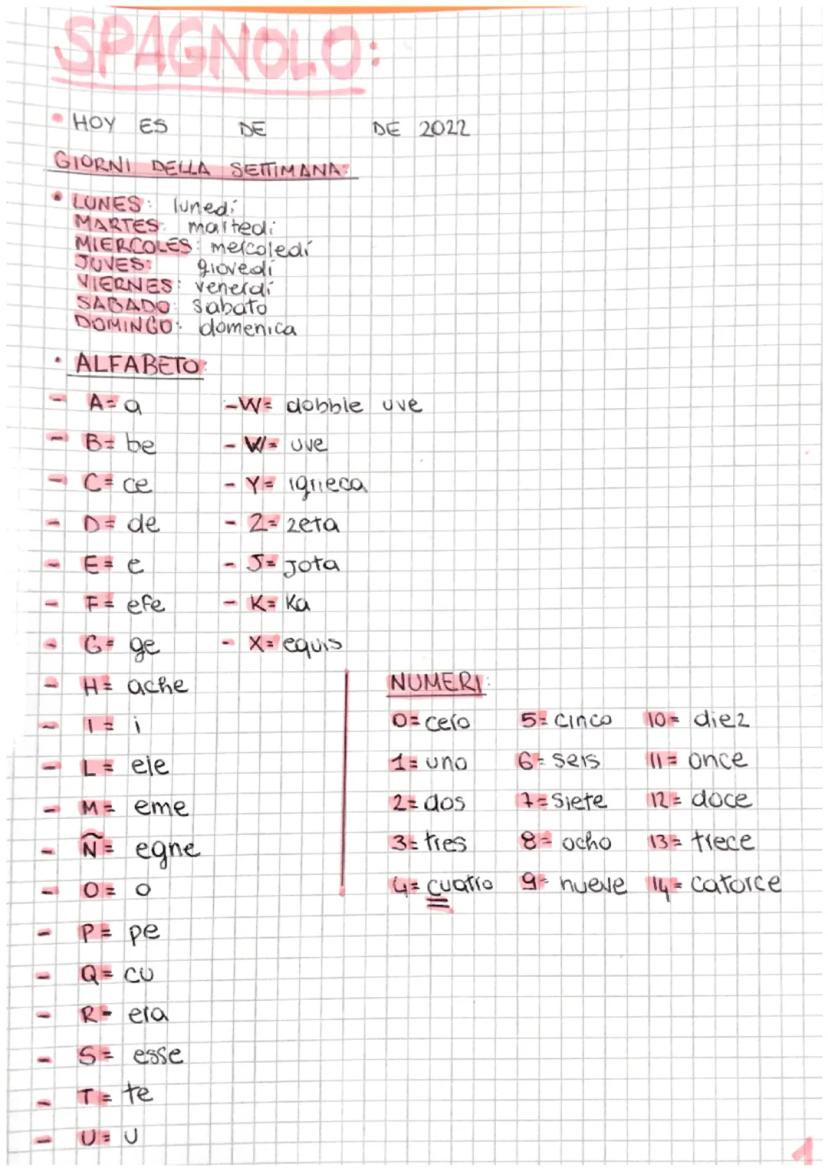 SPAGNOLO:
• HOY ES DE DE 2022
GIORNI DELLA SETTIMANA:
• LUNES: lunedì
MARTES: martedì
MIERCOLES: mercoledì
JUVES: giovedì
VIERNES: venerdì
SABADO: sabato
DOMINGO: domenica
• ALFABETO:
- A= a
- B= be
- C= ce
- D= de
- E= e
- F= efe
- G= ge
- H= ache
- I= i
- L= ele
- M= eme
- Ñ= egne
- O= o
- P= pe
- Q= cu
- R= era
- S= esse
- T= te
- U= U
- W= dobble uve
- W= uve
- Y= igrieca
- Z= zeta
- J= Jota
- K= Ka
- X= equis
NUMERI:
0= cero
1= uno
2= dos
3= tres
4= cuatro
5= cinco
6= seis
7= siete
8= ocho
9= nueve
10= diez
11= once
12= doce
13= trece
14= catorce
1